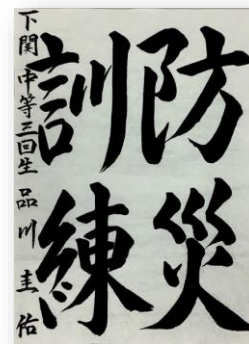 防災
訓練
下関中等三回生 品川圭佑